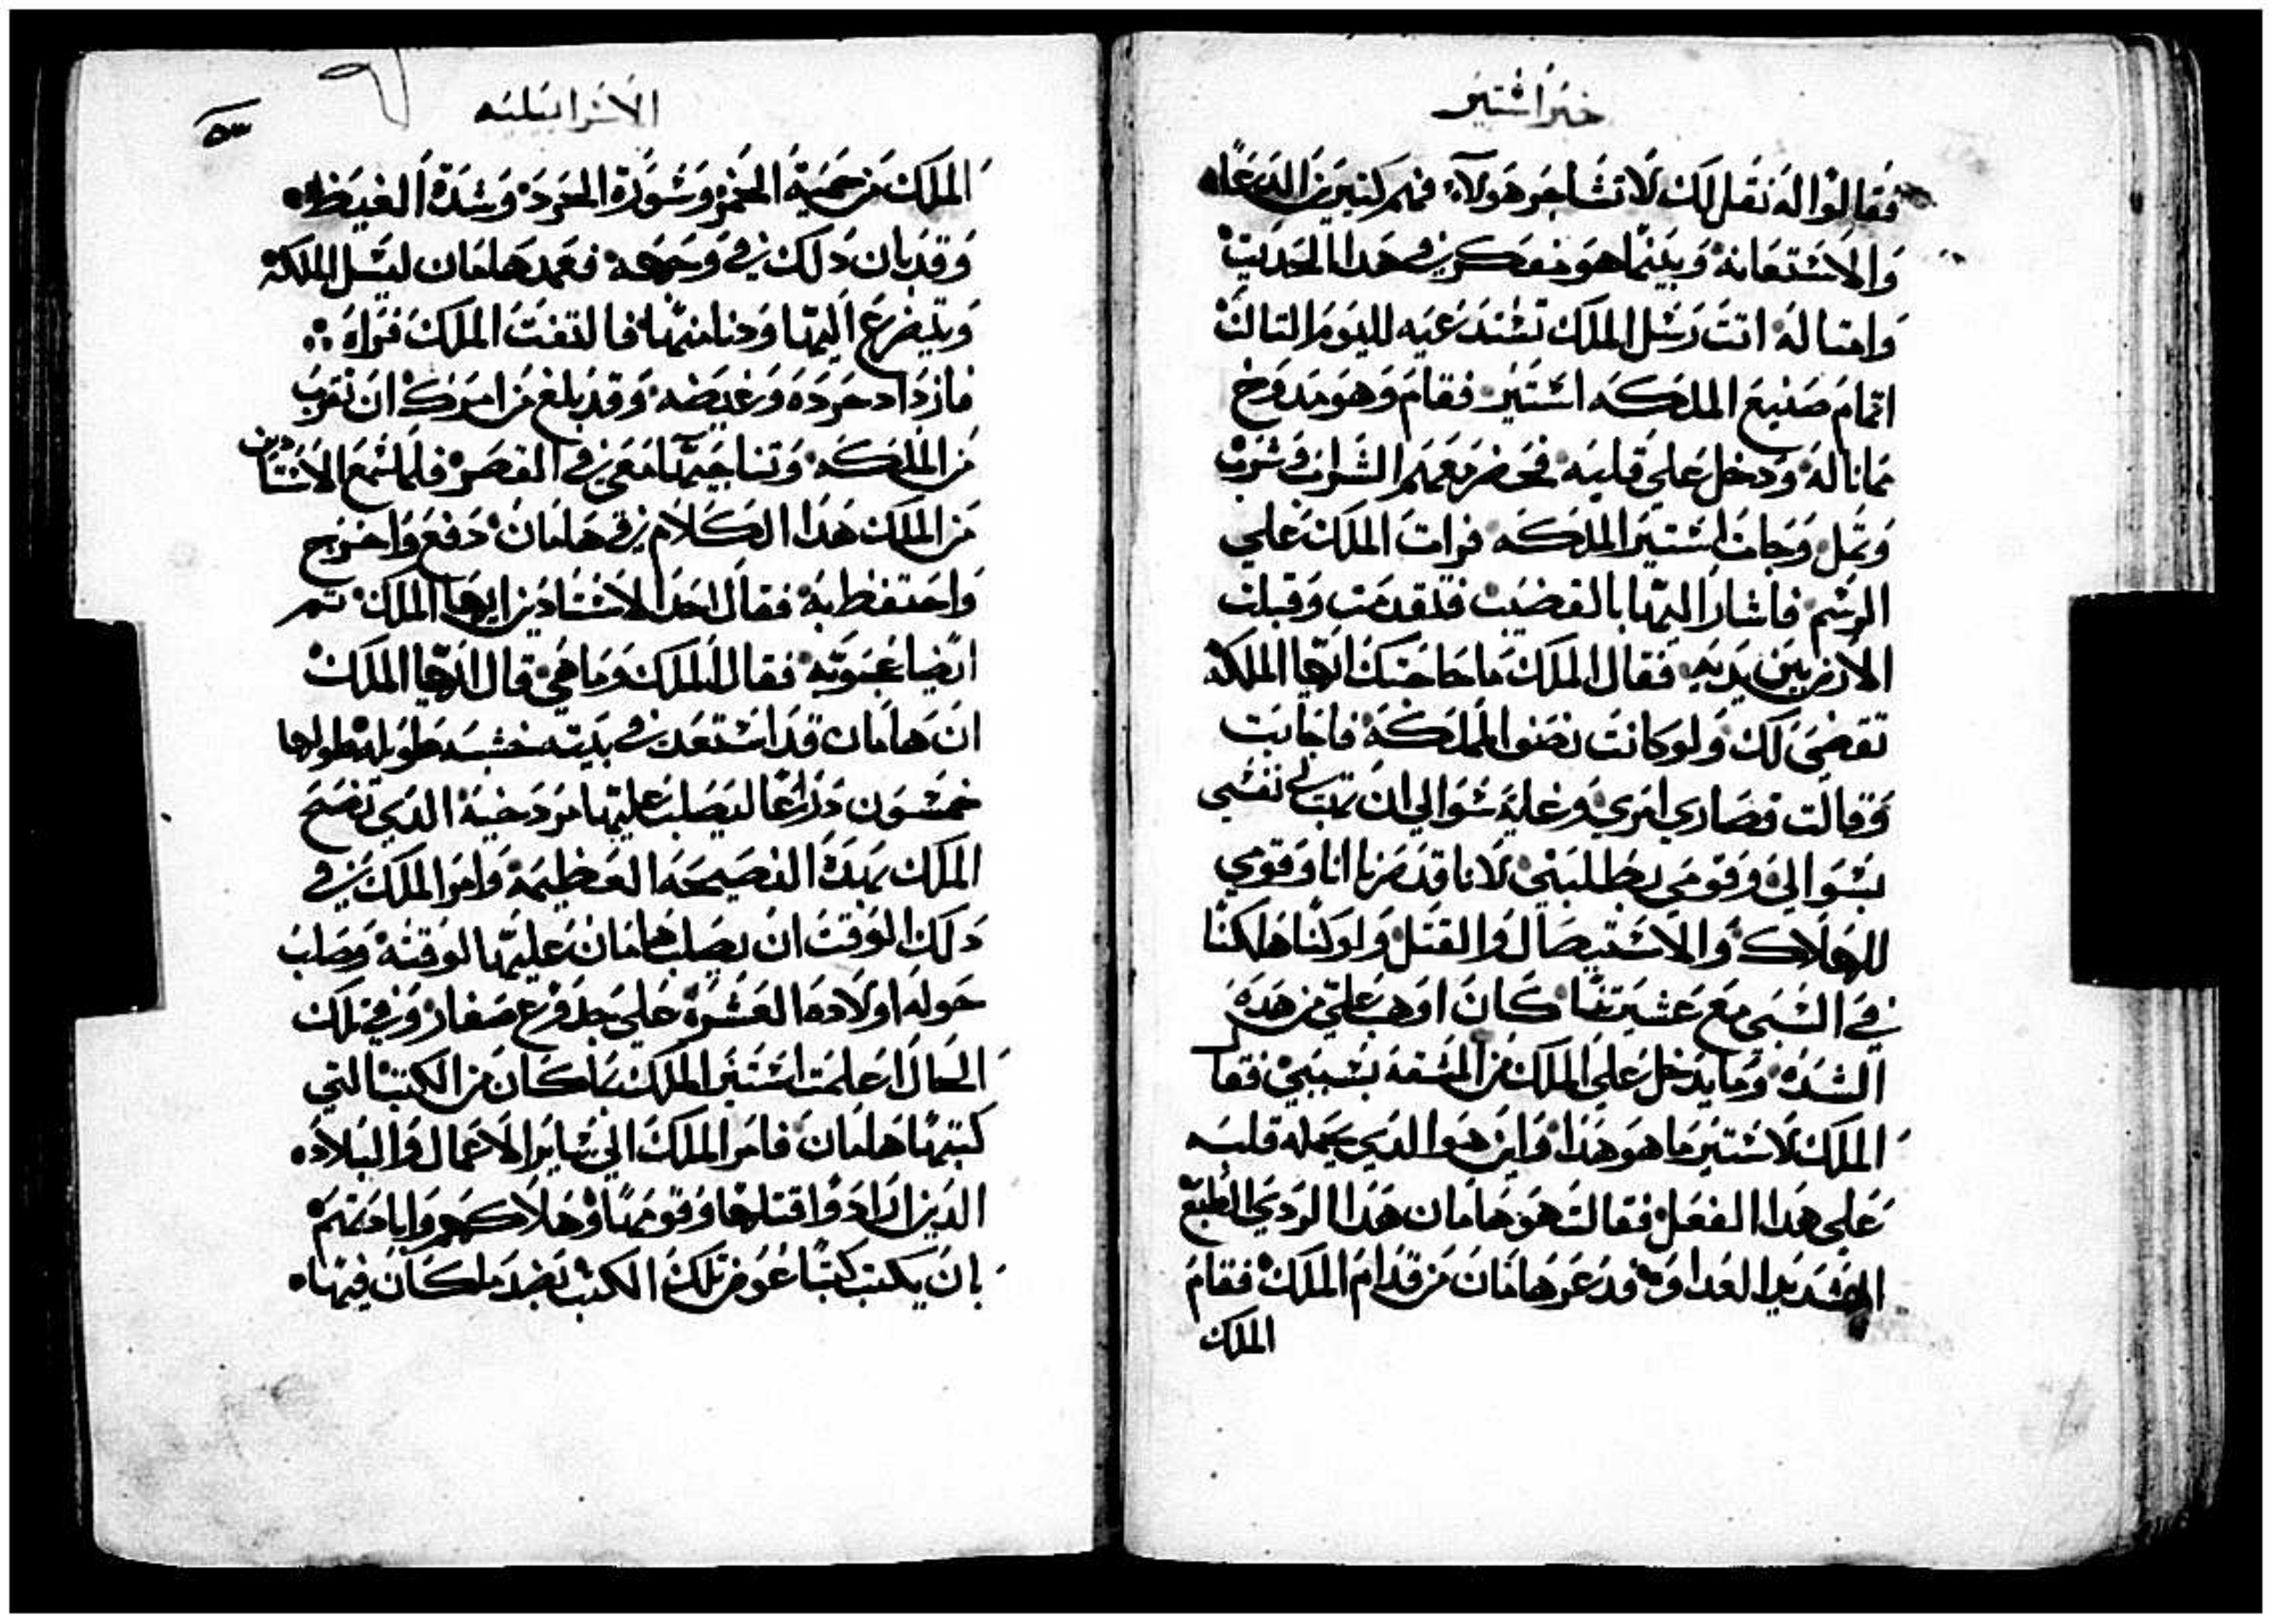 خبر اشتير
فقالوا له نقل لك لا تشاجر هولاء فهم كتيرين الدعاء
والاشتعانة وبينما هو مفكر في هدا الحديت
وامتاله اتت رسل الملك تشتدعيه لليوم التالت
اتمام صنيع الملكه اشتير فقام وهو مدوخ
مما ناله ودخل علي قلبه فحضر معهم الشراب وشرب
وتمل وجات اشتير الملكه فرات الملك علي
الرسم فاشار اليها بالقضيب فتقدمت وقبلت
الارض بين يديه فقال الملك ما حاجتك ايها الملكة
تقضي لك ولو كانت نصف المملكة فاجابت
وقالت قصاري امري وغاية شوالي ان تهب لي نفشي
بشوالي وقومي بطلبتي لانا قد صرنا انا وقومي
للهلاك والاشتيصال والقتل ولو كنا هلكنا
في الشبي مع عشيرتنا كان اوهب علي من هده
الشدة وما يدخل علي الملك من المشقة بشببي فقا
الملك لاشتير ما هو هدا واين هو الدي يحمله قلبه
علي هدا الفعل فقالت هو هامان هدا الردي الطبع
الشديد العداوة فدعر هامان من قدام الملك فقام
الملك
الاسرايليه
٥٣
الملك من حمية الخمر وشورة الحرد وشدة الغيظ
وقد بان دلك في وجهه فعمد هامان ليسل الملكة
ويتضرع اليها ودنا منها فالتفت الملك فراه
فازداد حرده وغيضه وقد بلغ من امرك ان تقرب
من الملكه وتناجيها معي في القصر فلما شمع الاشتادين
من الملك هدا الكلام في هامان دفع واخرج
واحتفظ به فقال احد الاشتادين ايها الملك تم
ايضا عجوبه فقال الملك وما هي قال ايها الملك
ان هامان قد اشتعد في بيته خشبه طويلة طولها
خمشون دراعا ليصلب عليها مردخية الدي نصح
الملك بهده النصيحه العظيمة وامر الملك في
دلك الوقت ان يصلب هامان عليها لوقته وصلب
حوله اولاده العشرة علي جدفرع صغار وفي تلك
الحال اعلمت اشتير الملك بما كان من الكتب التي
كتبها هامان فامر الملك الي شاير الاعمال والبلاد
الدين ارادوا قتلها وقومها وهلاكهم وابادتهم
بان يكتب كتبا عوض تلك الكتب بضد ما كان فيها